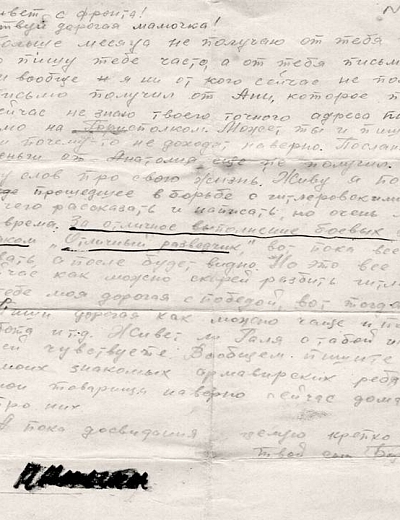 вет с фронта!
твуй дорогая мамочка!
ольше месяца не получаю от тебя
о пишу тебе часто, а от тебя письма
и вообще я ни от кого сейчас не по
исьмо получил от Ани, которое п
йчас не знаю твоего точного адреса пи
мо на полком. Может ты и пиш
и почему то не доходят наверно. Послан
еньги от Анатолия еще не получил.
у слов про свою жизнь. Живу я по
прошедшее в борьбе с гитлеровским
чего рассказать и написать, но очень
времени. За отличное выполнение боевых
ком „Отличный разведчик" вот пока все
вать а после будет видно. Но это все
йчас как можно скорей разбить гитл
тебе моя дорогая с победой, вот тогда
Пиши дорогая как можно чаще и по
бота и т.д. Живет ли Галя с тобой и
ей чувствуете. Вообщем пишите
моих знакомых армавирских ребя
мои товарищи наверно сейчас дома
про них
А пока досвидания целую крепко
Твой сын